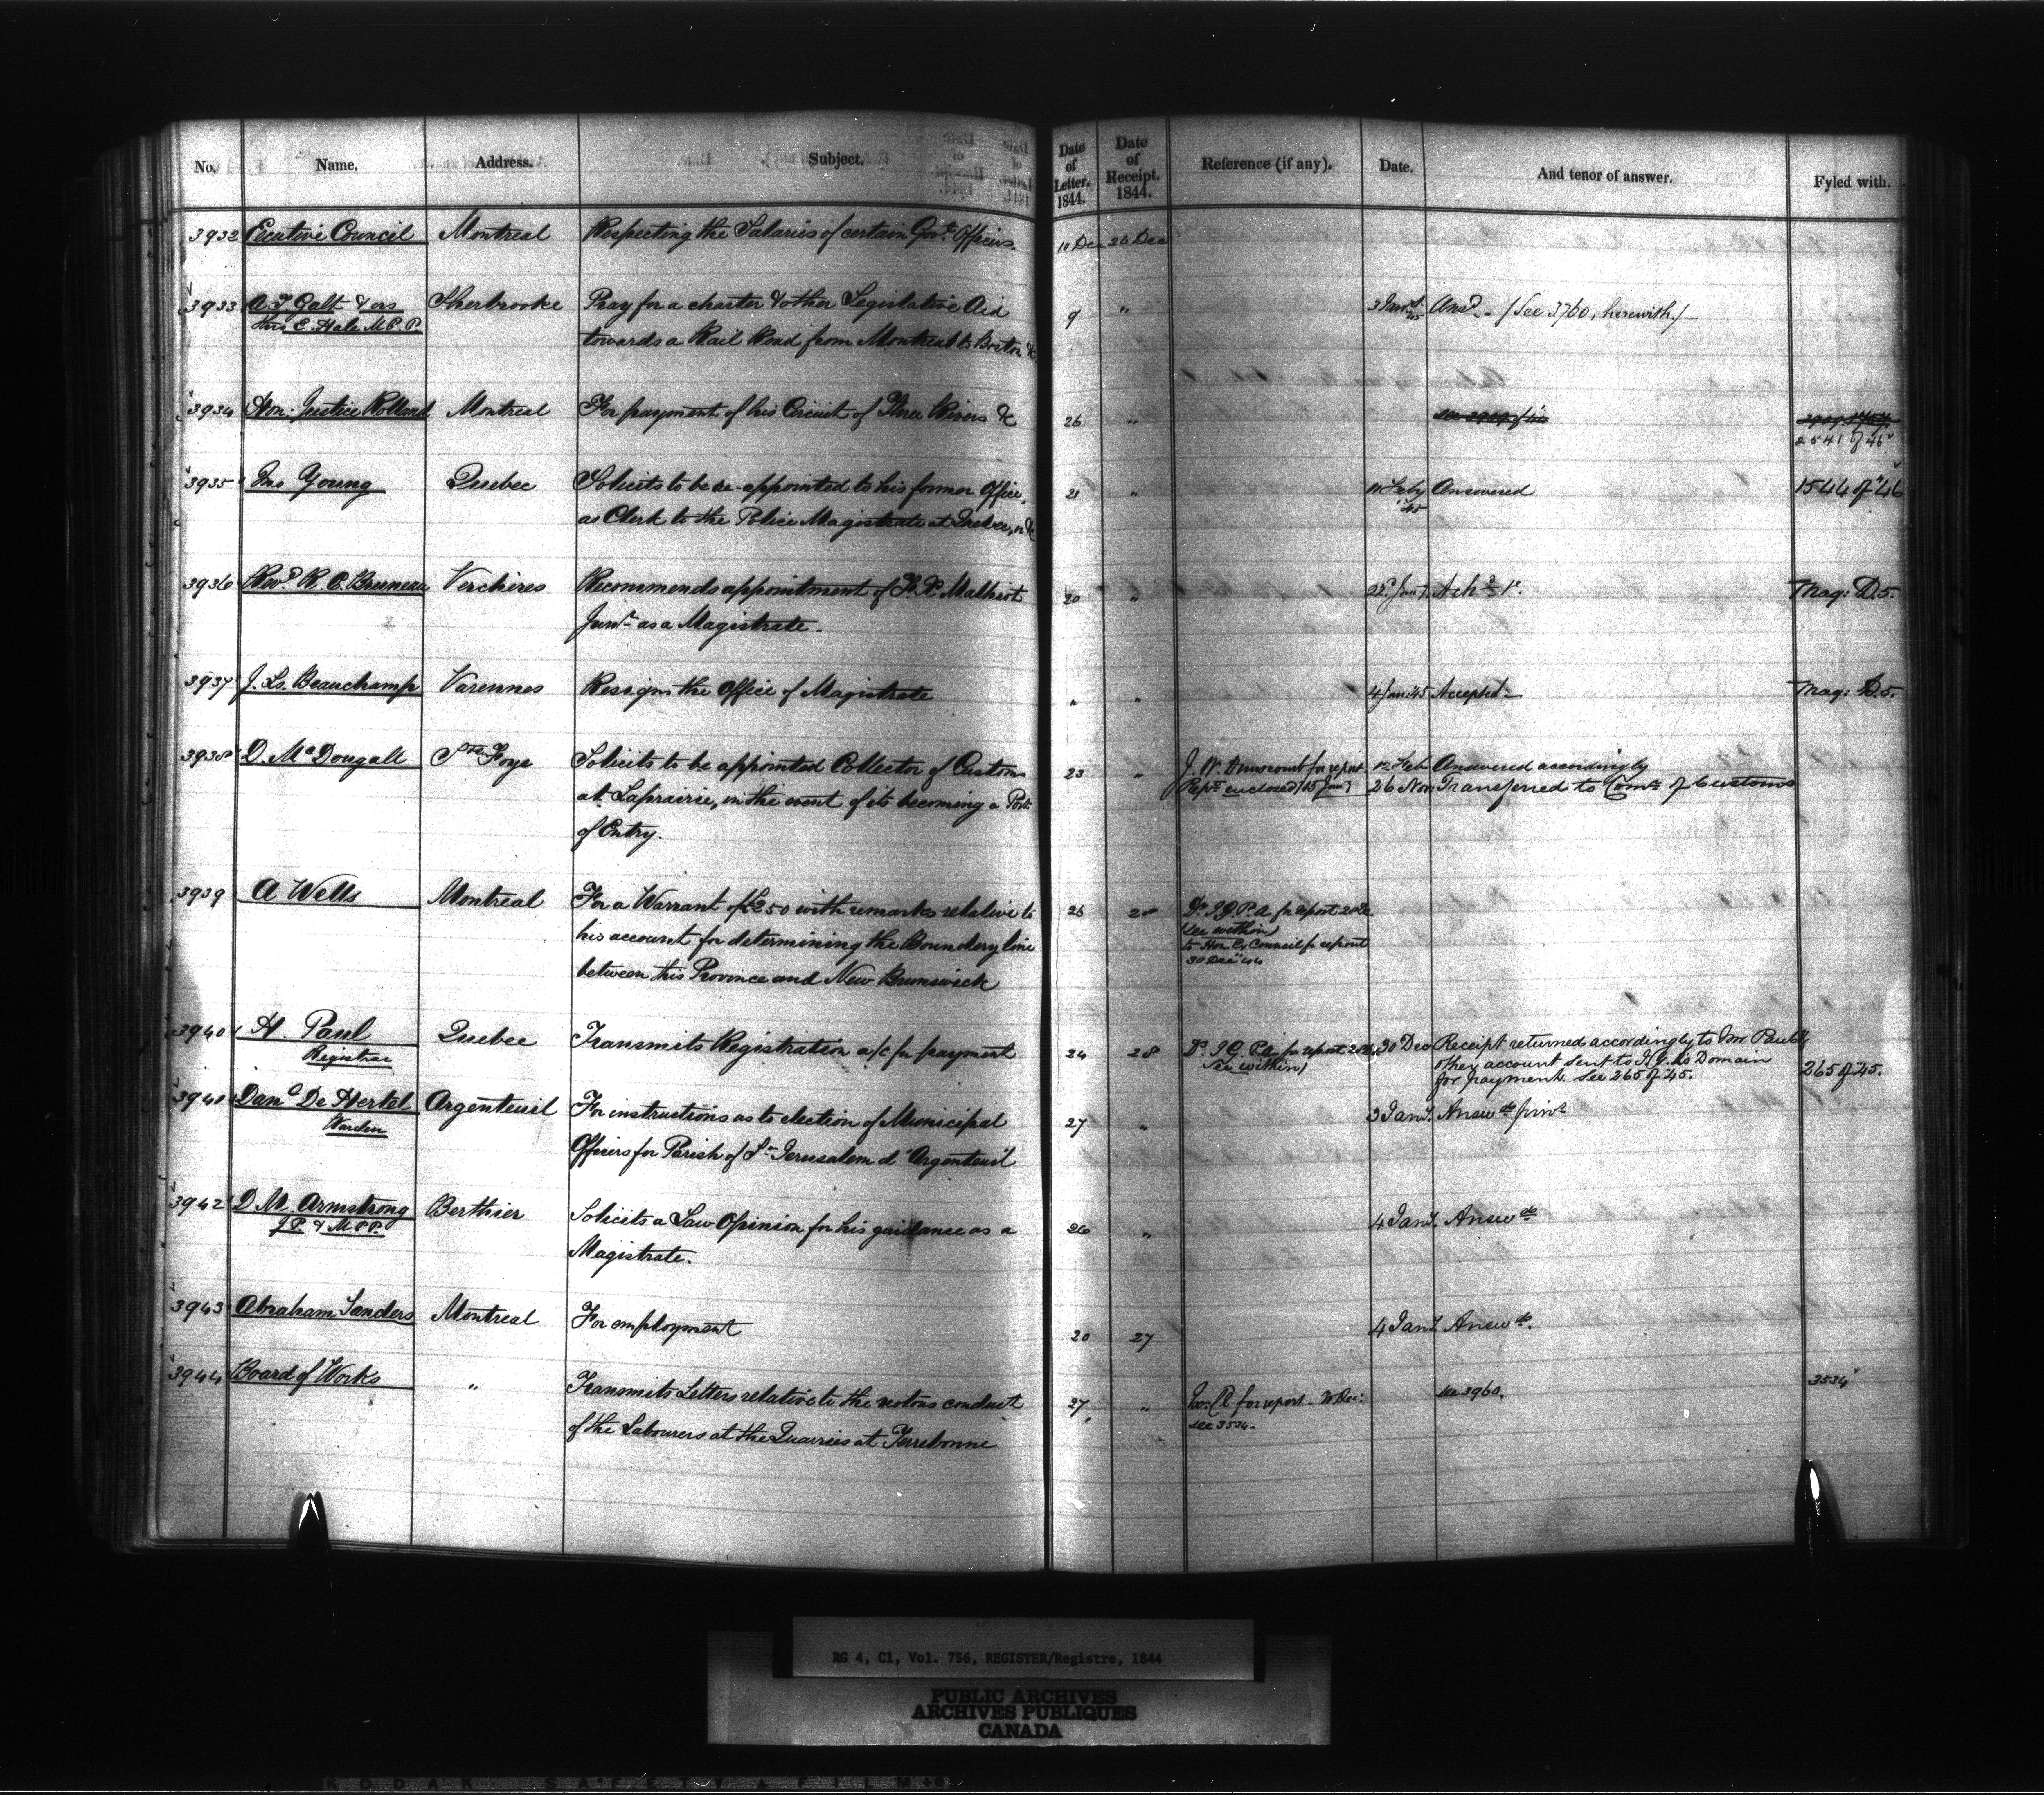 No. Name. Address. Subject. Date of Letter. 1844. Date of Receipt. 1844. Reference (if any). Date. And tenor of answer. Fyled with.
3932 Excutive Council Montreal Respecting the Salaries of certain Govt. Officers. 10 Dec 26 Dec
3933 A T Galt & ors Sherbrooke Pray for a charter & other Legislative Aid 9 " 3 Jany. 45 Ansd. - (See 3760, herewith.) -
thro E. Hale M.P.P. towards a Rail Road from Montreal to Boston &c
3934 Hon: Justice Rolland Montreal For payment of his Circuit of Three Rivers &c 26 "
2541 of 46
3935 Jno Young Quebec Solicits to be re-appointed to his former Office, 21 " 11 Feby '45 Answered 1544 of "46
as Clerk to the Police Magistrate at Quebec, or &c
3936 Revd. R. C. Bruneau Verchères Recommends appointment of F. X. Malhiot 20 " 22 Jany. Ackd. Mag: D.5.
Junr. as a Magistrate.
3937 J. Ls. Beauchamp Varennes Resigns the Office of Magistrate " " 4 Jan: 45 Accepted - Mag: D.5.
3938 D. McDougall Ste Foye Solicits to be appointed Collector of Customs 23 " J. W. Dunscomb for report 12 Feb. Answered accordingly
at Laprairie, in the event of its becoming a Port Rept. enclosed (15 Jan) 26 Nov: Transferred to Comr. of Customs
of Entry.
3939 A Wells Montreal For a Warrant of £250 with remarks relative to 26 28 Dy. I.G.P.A. for report 28 Dec
his account for determining the Boundery line (see within)
between this Province and New Brunswick to Hon Ex Council for report
30 Decr 44
3940 H. Paul Quebec Transmits Registration a/c for payment 24 28 Dy. I G. P.A. for report 28 Dec 30 Dec Receipt returned accordingly to Mr Paul &
Registrar see within) other account sent to I.G. Ks Domain
for payment. See 265 of 45. 265 of 45.
3941 Danl. De Hertel Argenteuil For instructions as to election of Municipal 27 " 3 Jany. Answd. privt.
Warden Officers for Parish of St. Jerusalem d'Argenteuil
3942 D. M. Armstrong Berthier Solicits a Law Opinion for his guidance as a 26 " 4 Jany. Answd.
J.P. & M.P.P. Magistrate.
3943 Abraham Sanders Montreal For employment 20 27 4 Jany. Answd.
3944 Board of Works " Transmits Letters relative to the riotous conduct 27 " Ex: Cl for report - 30 Dec: see 3960. 3534
of the Labourers at the Quarries at Terrebonne see 3534.
RG 4, C1, Vol. 756, REGISTER/Registre, 1844
PUBLIC ARCHIVES
ARCHIVES PUBLIQUES
CANADA
KODAK SAFETY FILM